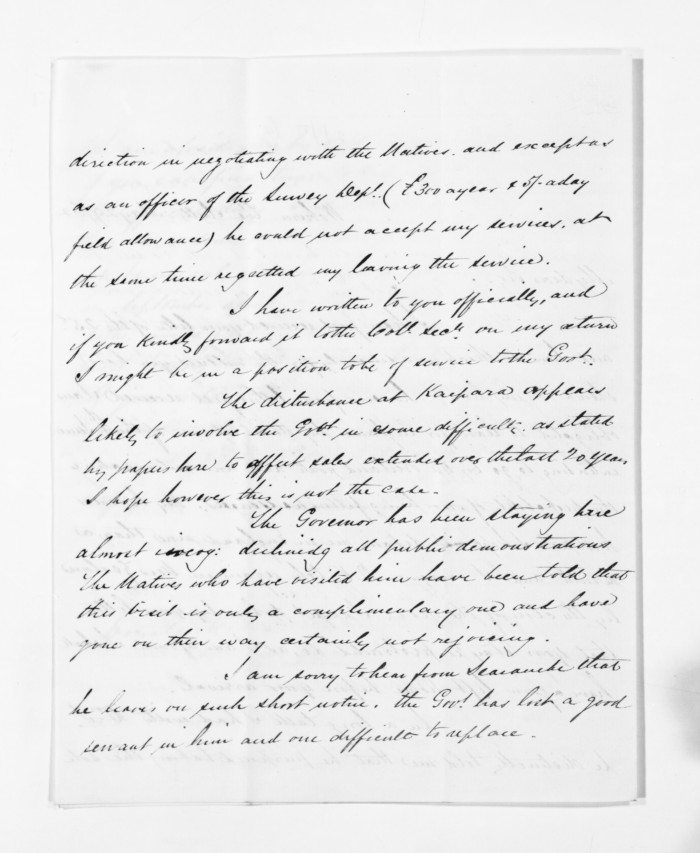 direction in negotiating with the Natives. and except as
as an officer of the Survey Dept. (£300 a year & 5/- a day
field allowance) he could not accept my services, at
the same time regretted my leaving the service.
I have written to you officially, and
if you kindly forward it to the Coll. Secy. on my return
I might be in a position to be of service to the Govt.
The disturbance at Kaipara appears
likely to involve the Govt. in some difficulty. as stated
by papers here to affect sales extended over the last 20 years
I hope however this is not the case.
The Governor has been staying here
almost incog: declining all public demonstrations
The Natives who have visited him have been told that
this visit is only a complimentary one and have
gone on their way certainly not rejoicing.
I am sorry to hear from Searancke that
he leaves on such short notice. the Govt. has lost a good
servant in him and one difficult to replace.